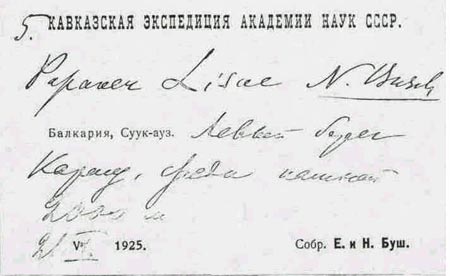 5. КАВКАЗСКАЯ ЭКСПЕДИЦИЯ АКАДЕМИИ НАУК СССР.
Papaver Lisae N. Busch
Балкария, Суук-ауз. Левый берег
среди
2000 м
21 VII 1925. Собр. Е. и Н. Буш.